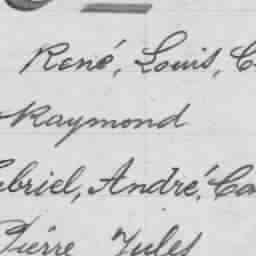 René, Louis, C
Raymond
briel, André, Ca
Pierre Jules